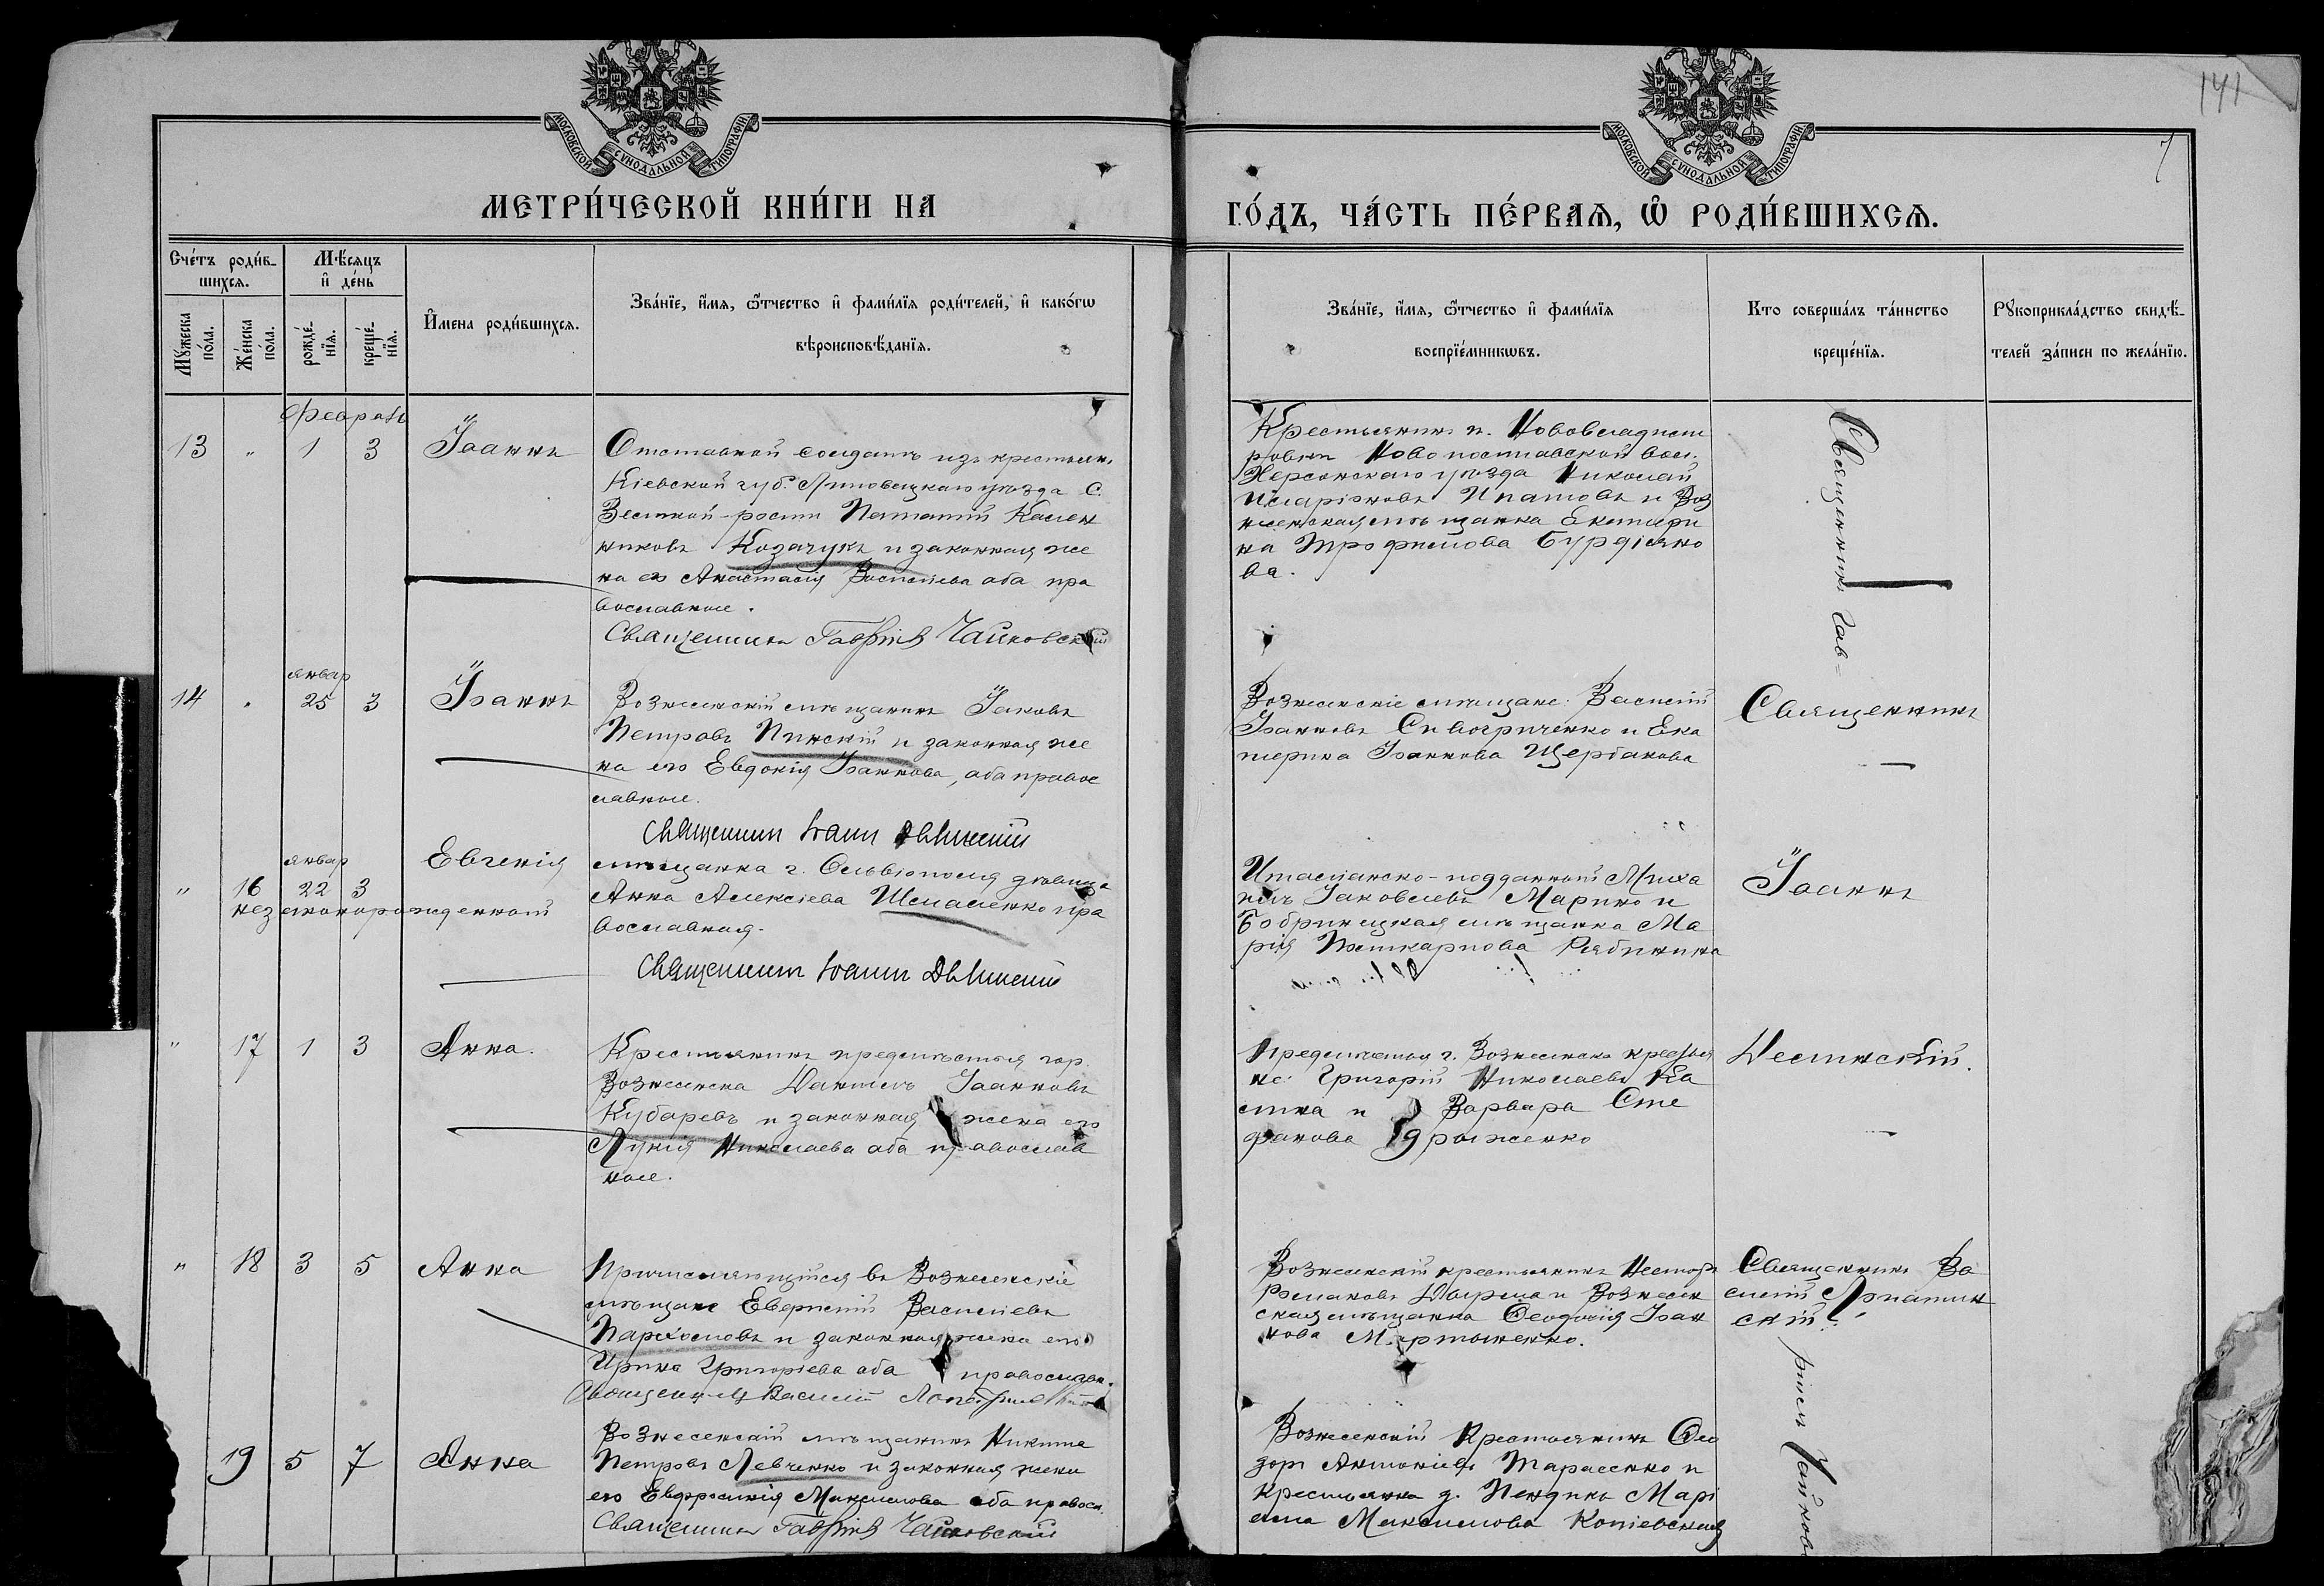 141
7
МОСКОВСКОЙ СѴНОДАЛЬНОЙ ТИПОГРАФІИ
МОСКОВСКОЙ СѴНОДАЛЬНОЙ ТИПОГРАФІИ
МЕТРИ́ЧЕСКОЙ КНИ́ГИ НА
ГО́ДЪ, ЧА́СТЬ ПЕ́РВАѦ, Ѡ҆ РОДИ́ВШИХСѦ.
Сче́тъ роди́в-
шихсѧ.
Мѣ́сѧцъ
и҆ де́нь
Мꙋ́жеска
по́ла.
Же́нска
по́ла.
рожде́-
нїѧ.
креще́-
нїѧ.
И҆мена роди́вшихсѧ.
Зва́нїе, и҆́мѧ, ѻ҆́тчество и҆ фами́лїѧ роди́телей, и҆ како́гѡ
вѣроисповѣ́данїѧ.
Зва́нїе, и҆́мѧ, ѻ҆́тчество и҆ фами́лїѧ
воспрїе́мникѡвъ.
Кто̀ соверша́лъ та́инство
креще́нїѧ.
Рꙋкоприкла́дство свидѣ́-
телей за́писи по жела́нїю.
Февраль
13 " 1 3 Іоаннъ
Отставной солдатъ изъ крестьянъ
Кіевской губ. Липовецкаго уѣзда С.
Зеленой-рощи
Козачукъ и законная же
на его Анастасія Василіева оба пра
вославные.
Священникъ Гавріилъ Чайковскій
Крестьянинъ п.
Херсонскаго уѣзда Николай
Иларіоновъ Ипатовъ и Воз
несенская мѣщанка Екатери
на Трофимова
ва.
Священникъ Гав=
январ
14 " 25 3 Іоаннъ
Вознесенскій мѣщанинъ Іаковъ
Петровъ Пинскій и законная же
на его Евдокія Іоаннова, оба правос
лавные.
Священникъ Іоаннъ
Вознесенскіе мѣщане: Василій
Іоанновъ Сивогриченко и Ека
терина Іоаннова Щербакова
Священникъ
январ
" 16 22 3 Евгенія
незаконорожденной
мѣщанка г. Ольвіополя дѣвица
Анна Алексіева Шмаленко пра
вославная.
Священникъ Іоаннъ
Италіанско-подданный Миха
илъ Іаковлевъ Марино и
Бобринецкая мѣщанка Ма
рія Поликарпова Рябинина
Іоаннъ
" 17 1 3 Анна.
Крестьянинъ предмѣстья гор.
Вознесенска Даніилъ Іоанновъ
Кубаревъ и законная жена его
Лукія Николаева оба православ
ные.
Предмѣстья г. Вознесенска крестья
не: Григорій Николаевъ Ка
и Варвара Сте
фанова
" 18 3 5 Анна
Причисляющійся въ Вознесенскіе
мѣщане Евгеній Василіевъ
Пархомовъ и законная жена его
Ирина Григоріева оба православн.
Священникъ Василій
Вознесенскій крестьянинъ Несторъ
Романовъ и Вознесен
ская мѣщанка Ѳеодосія Іоан
нова Мартыненко.
Священникъ Ва
силій
скій
19 5 7 Анна
Вознесенскій мѣщанинъ Никита
Петровъ Левченко и законная жена
его Евфросинія Максимова оба правосл.
Священникъ Гавріилъ Чайковскій
Вознесенскій Крестьянинъ Ѳео
доръ Антоніевъ Тарасенко и
крестьянка д. Марі
анна Максимова Копіевская
ріилъ Чайков